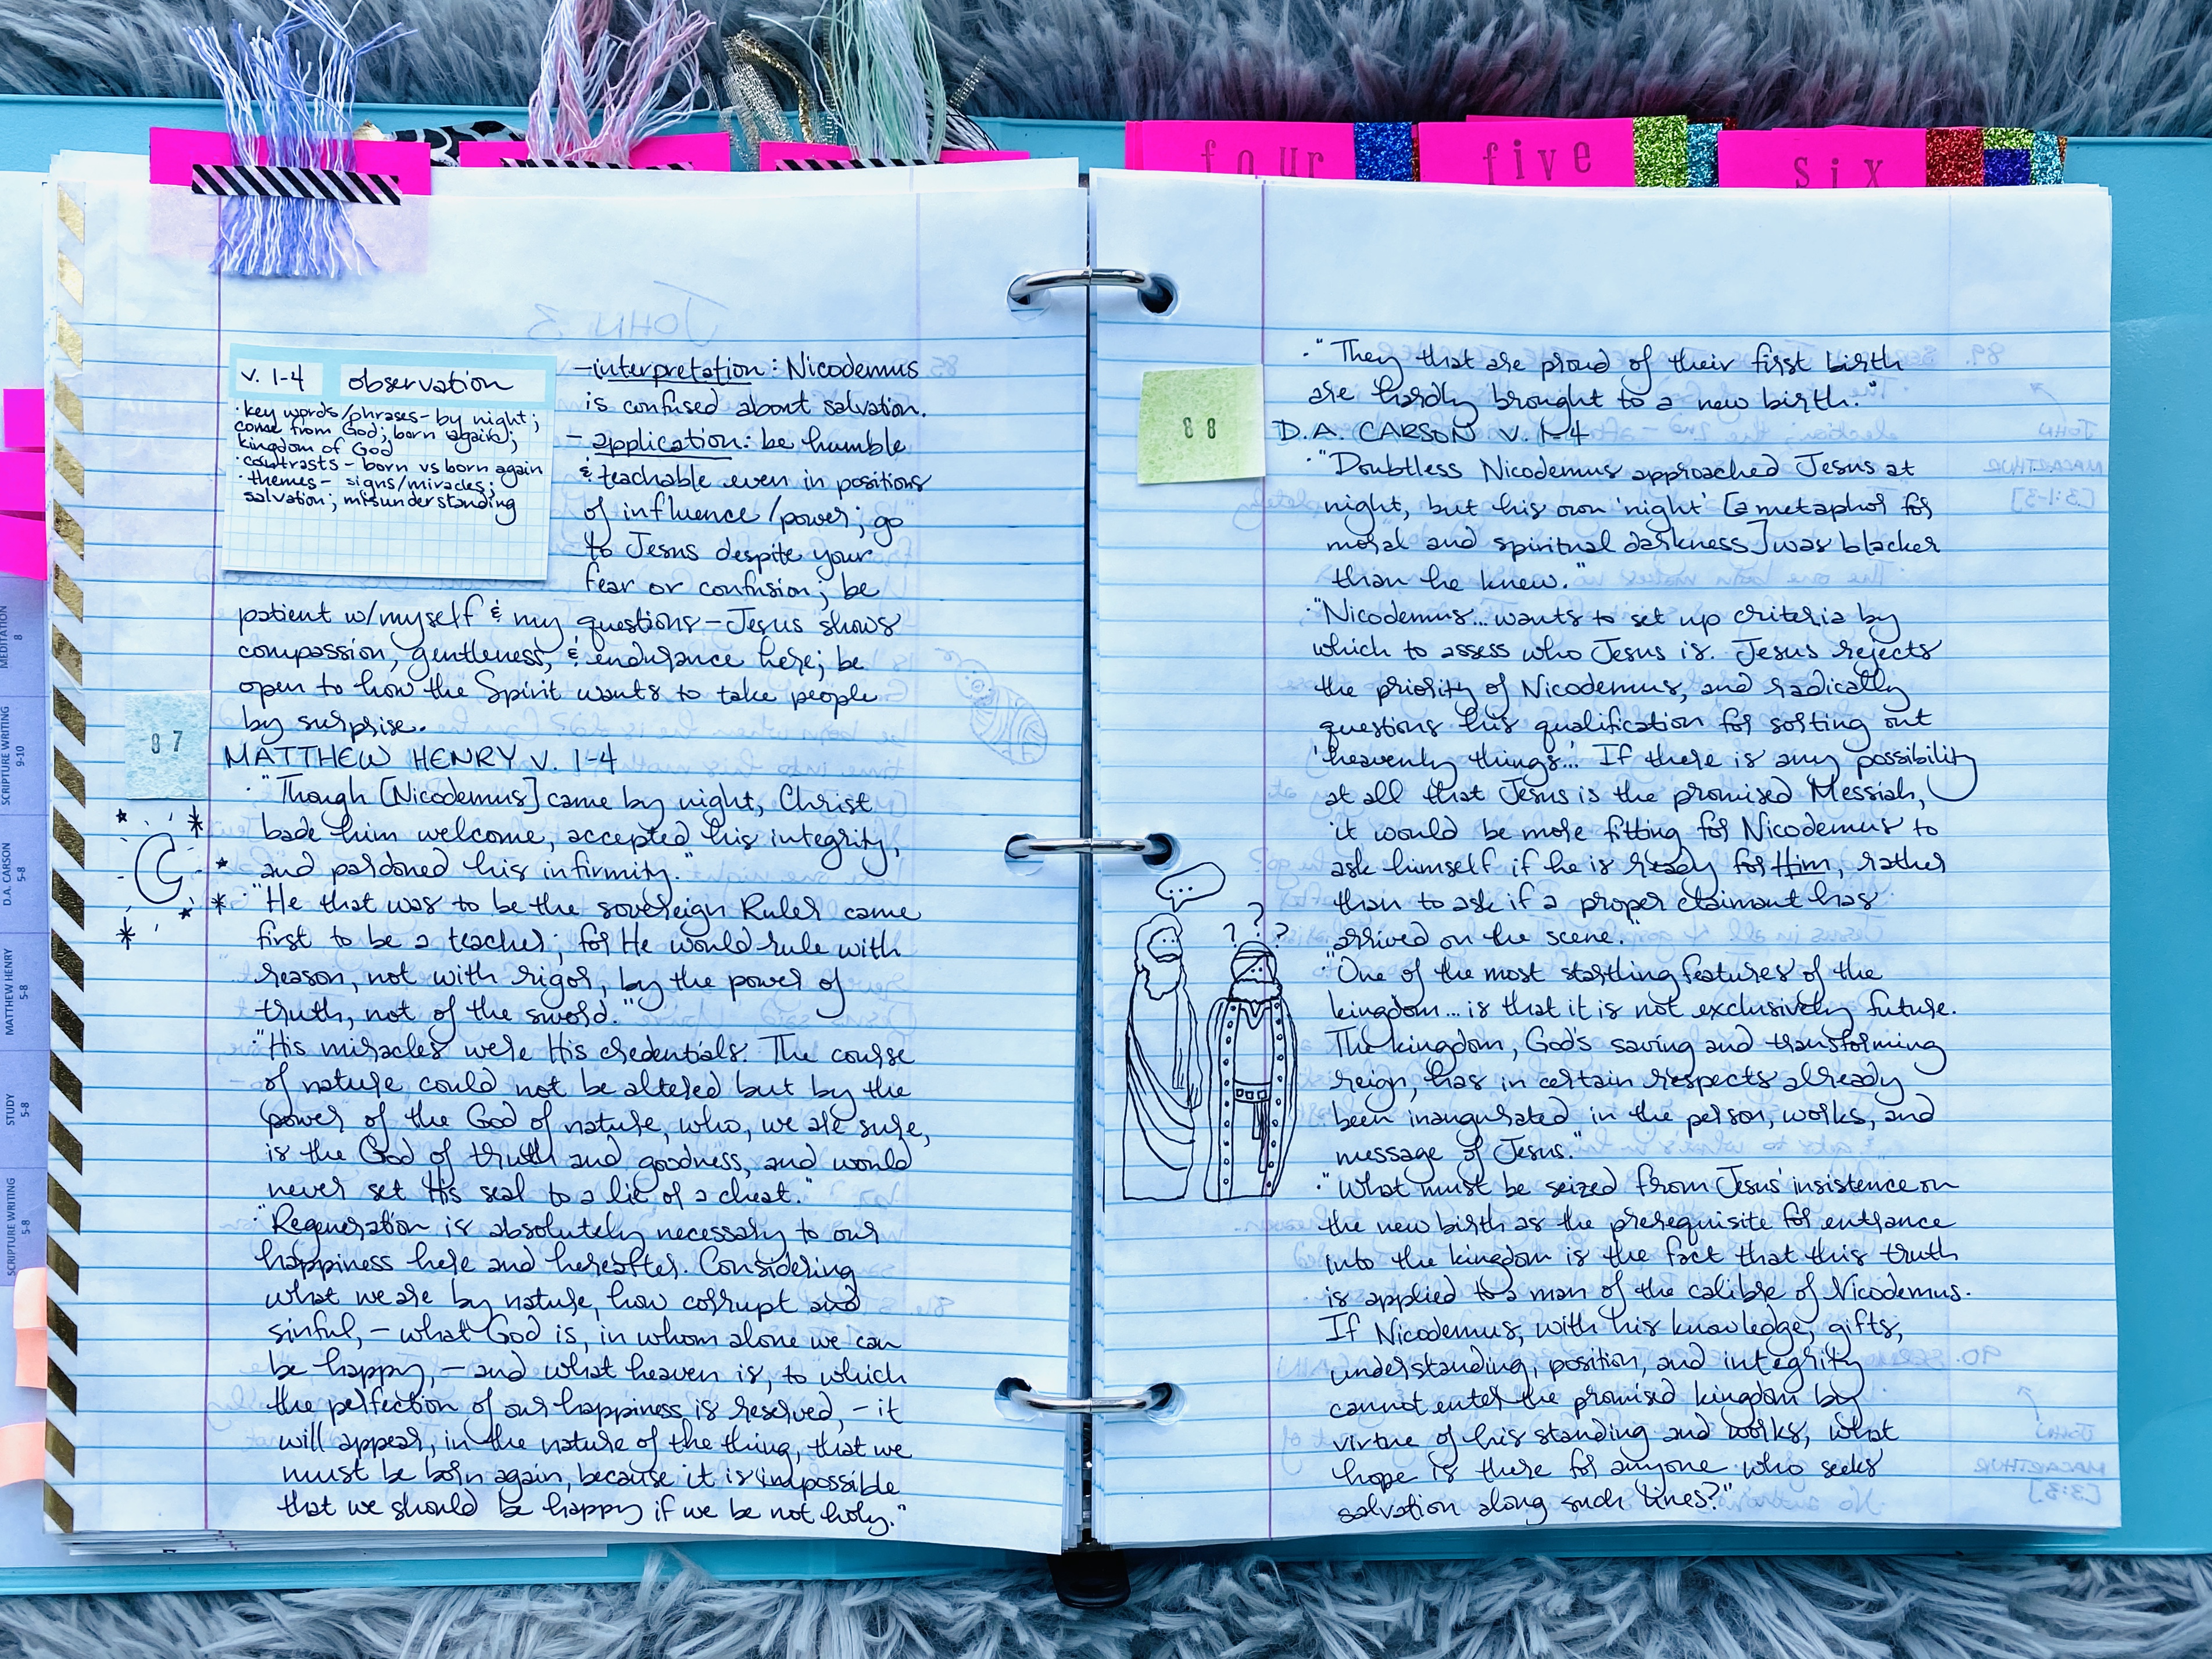 four
five
six
v. 1-4 observation
· key words/phrases - by night;
come from God; born again;
kingdom of God
· contrasts - born vs born again
· themes - signs/miracles;
salvation; misunderstanding
- interpretation: Nicodemus
is confused about salvation.
- application: be humble
& teachable even in positions
of influence/power; go
to Jesus despite your
fear or confusion; be
patient w/myself & my questions - Jesus shows
compassion, gentleness, & endurance here; be
open to how the Spirit wants to take people
by surprise.
87
MATTHEW HENRY v. 1-4
· "Though [Nicodemus] came by night, Christ
bade him welcome, accepted his integrity,
and pardoned his infirmity."
· "He that was to be the sovereign Ruler came
first to be a teacher; for He would rule with
reason, not with rigor, by the power of
truth, not of the sword."
· "His miracles were His credentials. The course
of nature could not be altered but by the
power of the God of nature, who, we are sure,
is the God of truth and goodness, and would
never set His seal to a lie of a cheat."
· "Regeneration is absolutely necessary to our
happiness here and hereafter. Considering
what we are by nature, how corrupt and
sinful, - what God is, in whom alone we can
be happy, - and what heaven is, to which
the perfection of our happiness is reserved, - it
will appear, in the nature of the thing, that we
must be born again, because it is impossible
that we should be happy if we be not holy."
· "They that are proud of their first birth
are hardly brought to a new birth."
88
D.A. CARSON v. 1-4
· "Doubtless Nicodemus approached Jesus at
night, but his own 'night' [a metaphor for
moral and spiritual darkness] was blacker
than he knew."
· "Nicodemus... wants to set up criteria by
which to assess who Jesus is. Jesus rejects
the priority of Nicodemus, and radically
questions his qualification for sorting out
'heavenly things'... If there is any possibility
at all that Jesus is the promised Messiah,
it would be more fitting for Nicodemus to
ask himself if he is ready for Him, rather
than to ask if a proper claimant has
arrived on the scene."
· "One of the most startling features of the
kingdom... is that it is not exclusively future.
The kingdom, God's saving and transforming
reign, has in certain respects already
been inaugurated in the person, works, and
message of Jesus."
· "What must be seized from Jesus' insistence on
the new birth as the prerequisite for entrance
into the kingdom is the fact that this truth
is applied to a man of the calibre of Nicodemus.
If Nicodemus, with his knowledge, gifts,
understanding, position, and integrity
cannot enter the promised kingdom by
virtue of his standing and works, what
hope is there for anyone who seeks
salvation along such lines?"
...
? ? ?
MEDITATION
8
SCRIPTURE WRITING
9-10
D.A. CARSON
5-8
MATTHEW HENRY
5-8
STUDY
5-8
SCRIPTURE WRITING
5-8
JOHN 3